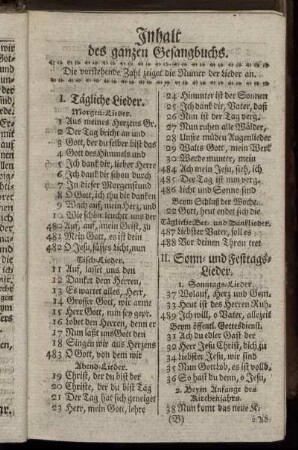 Inhalt
des ganzen Gesangbuchs.
Die vorstehende Zahl zeiget die Numer der Lieder an.
I. Tägliche Lieder.
Morgen-Lieder.
1 Aus meines Herzens Gr.
2 Der Tag bricht an und
3 Gott, der du selber bist das
4 Gott des Himmels und
5 Ich dank dir, lieber Herre
6 Ich dank dir schon durch
7 In dieser Morgenstund
8 O Gott, ich thu dir danken
9 Wach auf, mein Herz, und
10 Wie schön leucht uns der
480 Auf, mein Geist, zu
481 Mein Gott, es ist dein
483 O Jesu, süsses Licht, nun
Tisch-Lieder.
11 Auf, lasset uns den
12 Danket dem Herren,
13 Es wartet alles, Herr,
14 Grosser Gott, wir arme
15 Herr Gott, nun sey gepr.
16 Lobet den Herren, denn er
17 Nun laßt uns Gott den
18 Singen wir aus Herzens
483 O Gott, von dem wir
Abend-Lieder.
19 Christ, der du bist der
20 Christe, der du bist Tag
21 Der Tag hat sich geneiget
23 Herr, mein Gott, lehre
24 Hinunter ist der Sonnen
25 Ich dank dir, Vater, daß
26 Nun ist der Tag verg.
27 Nun ruhen alle Wälder,
28 Unsre müden Augenlieder
29 Walts Gott, mein Werk
30 Werde munter, mein
484 Ach mein Jesu, sieh, ich
485 Der Tag ist nun verg.
486 Licht und Sonne sind
Beym Schluß der Woche.
22 Gott, heut endet sich die
Tägliche Bet- und Danklieder.
487 Liebster Vater, soll es
488 Vor deinen Thron tret
II. Sonn- und Festtags-
Lieder.
1. Sonntags-Lieder.
37 Wolauf, Herz und Sinn.
33 Heut ist des Herren Ruh.
489 Ich will, o Vater, allezeit
Beym öffentl. Gottesdienst.
31 Ach du edler Gast der
32 Herr Jesu Christ, dich zu
34 Liebster Jesu, wir sind
35 Nun Gottlob, es ist vollb.
36 So hast du denn, o Jesu,
2. Beym Anfange des
Kirchenjahrs.
38 Nun komt das neue K-
(B)